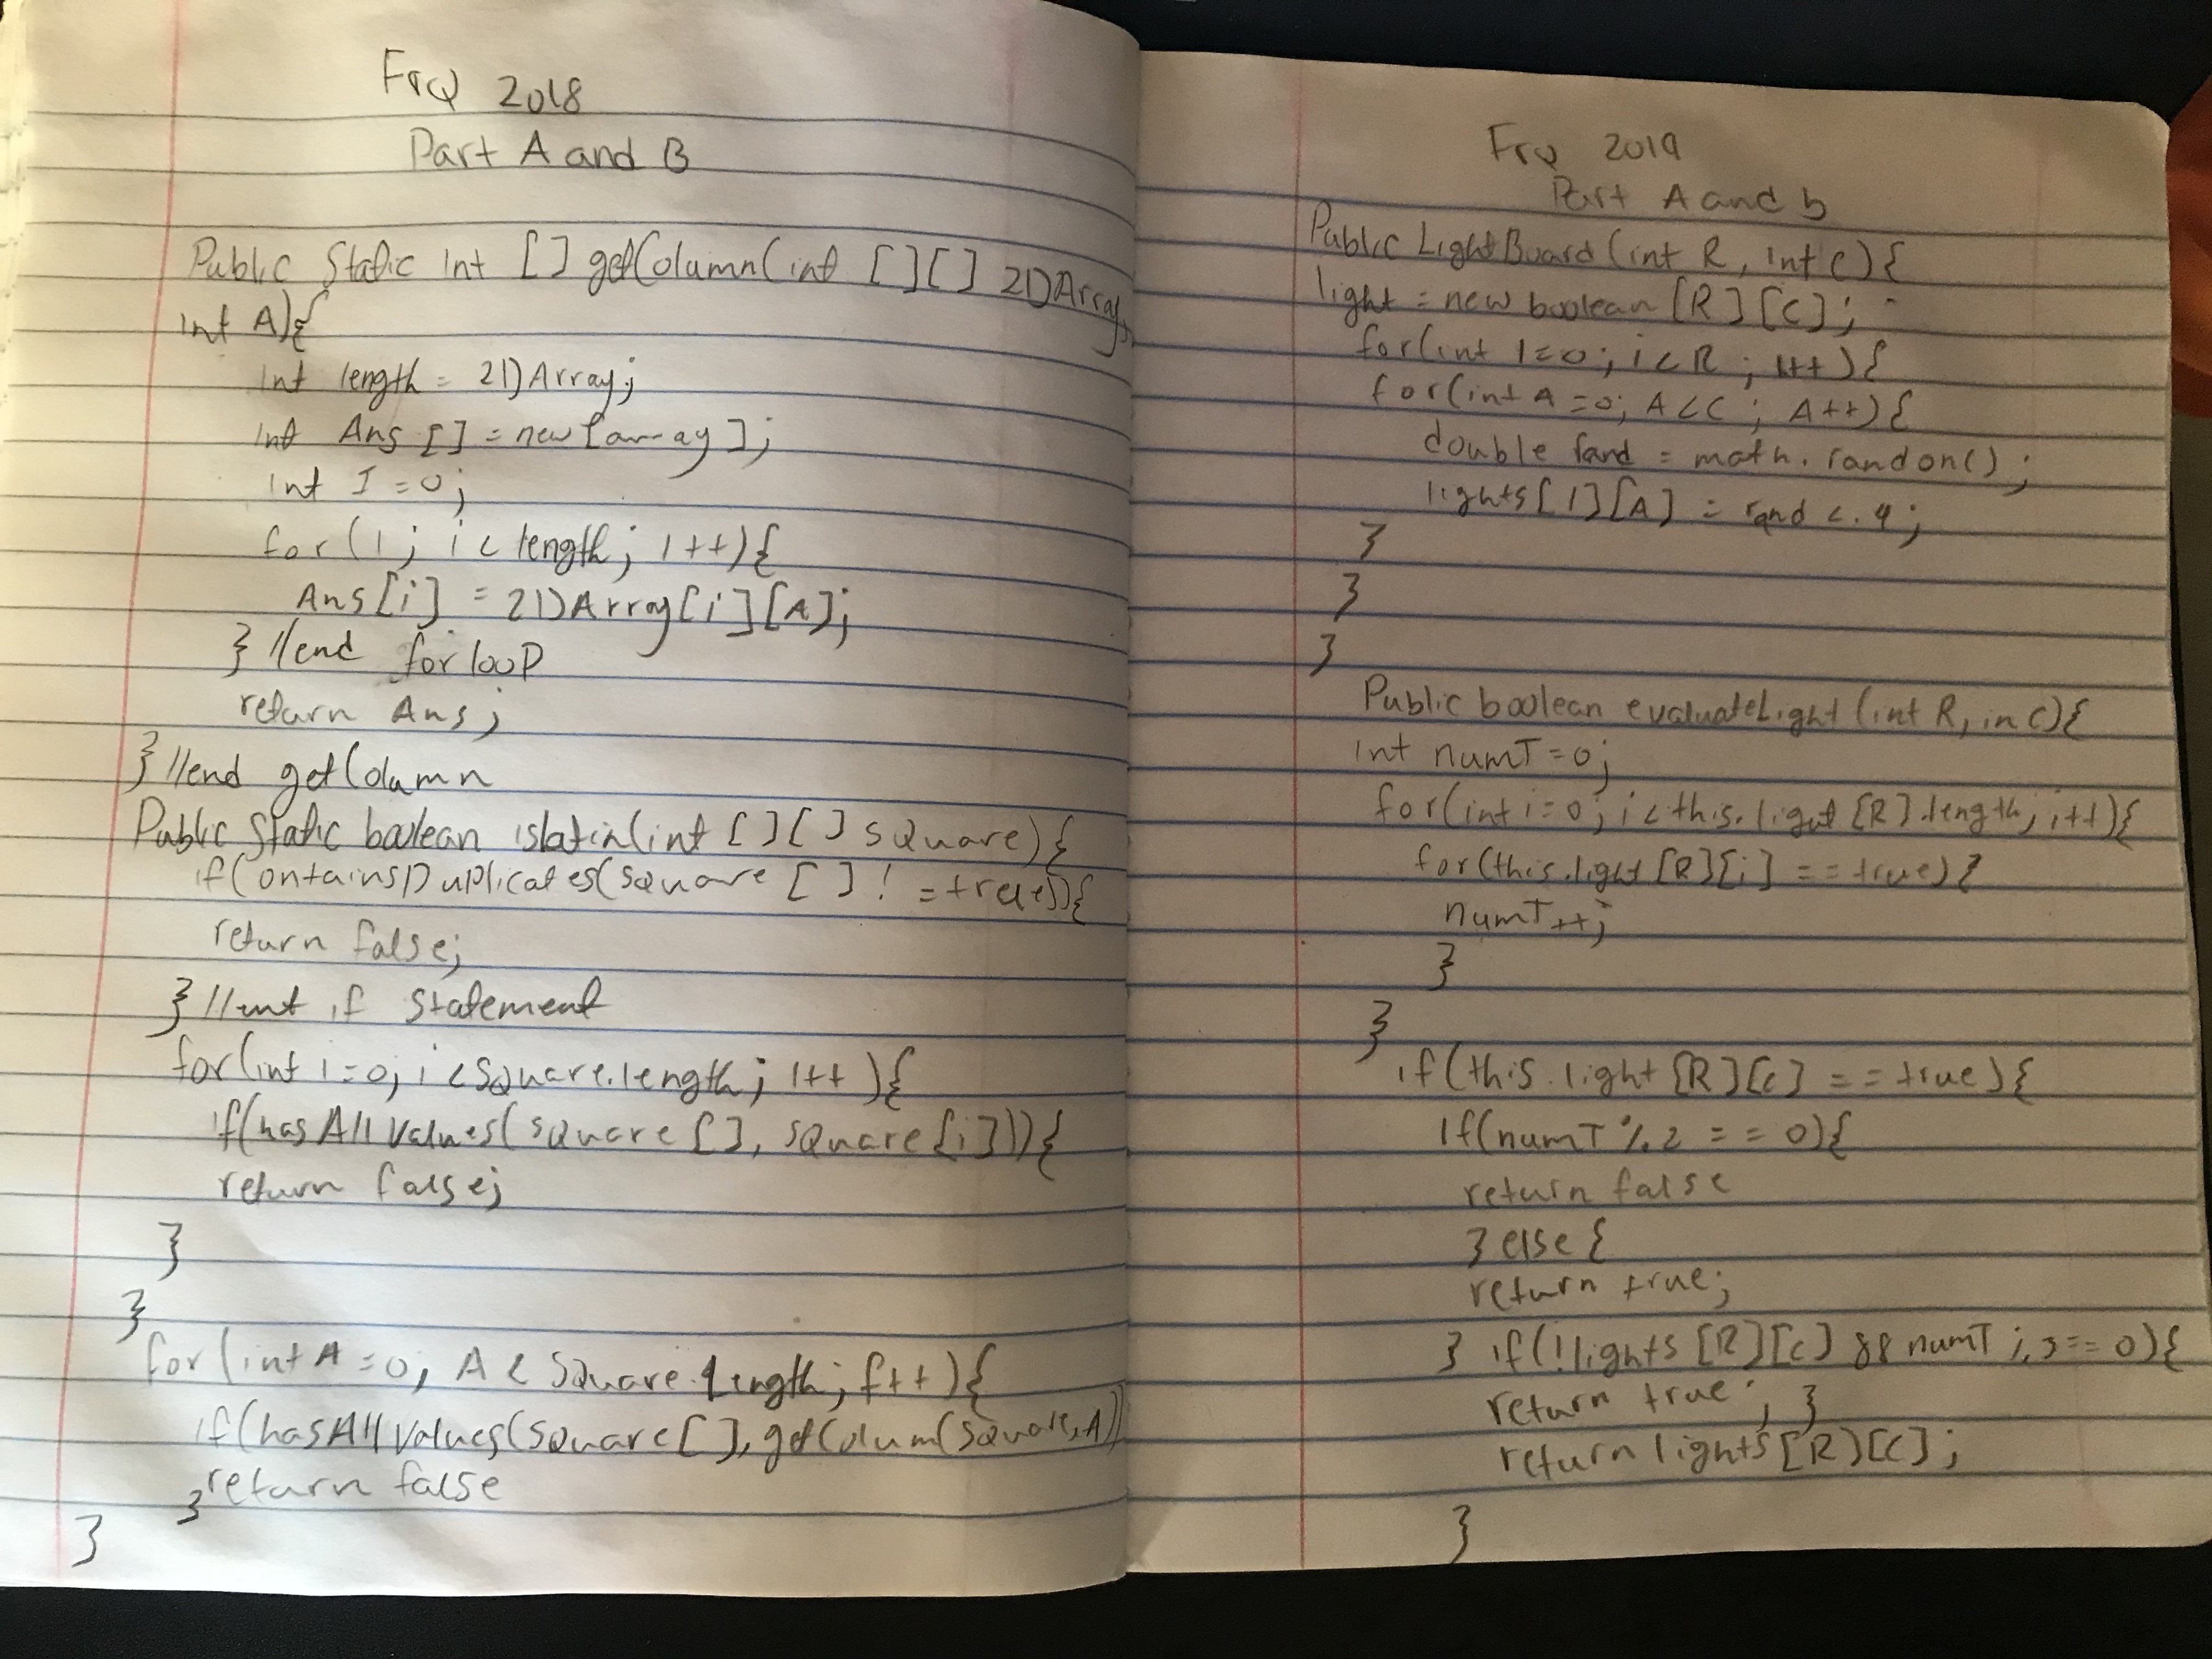 FrQ 2018
Part A and B
Public Static int [ ] getColumn(int [ ][ ] 2DArray,
int A){
int length = 2DArray;
int Ans [ ] = new[array];
int I = 0;
for( i; i < length; i++){
Ans[i] = 2DArray[i][A];
} //end for loop
return Ans;
} //end getColumn
Public Static boolean isLatin(int [ ][ ] square){
if(ContainsDuplicates(square [ ] != true)){
return false;
} //end if statement
for(int i=0; i<square.length; i++){
if(hasAllValues(square[ ], square[i])){
return false;
}
}
for(int A=0; A<square.length; f++){
if(hasAllValues(square[ ], getColum(square,A))
return false
}
}
FrQ 2019
Part A and b
Public LightBoard(int R, int C){
light = new boolean [R][C];
for(int i=0; i<R; i++){
for(int A=0; A<C; A++){
double rand = math.random();
lights[i][A] = rand < .4;
}
}
}
Public boolean evaluateLight(int R, in C){
int numT=0;
for(int i=0; i<this.light[R].length; i++){
for(this.light[R][i] == true){
numT++;
}
}
if(this.light[R][C] == true){
if(numT % 2 == 0){
return false
} else {
return true;
} if(!lights[R][C] && numT % 3 == 0){
return true; }
return lights[R][C];
}